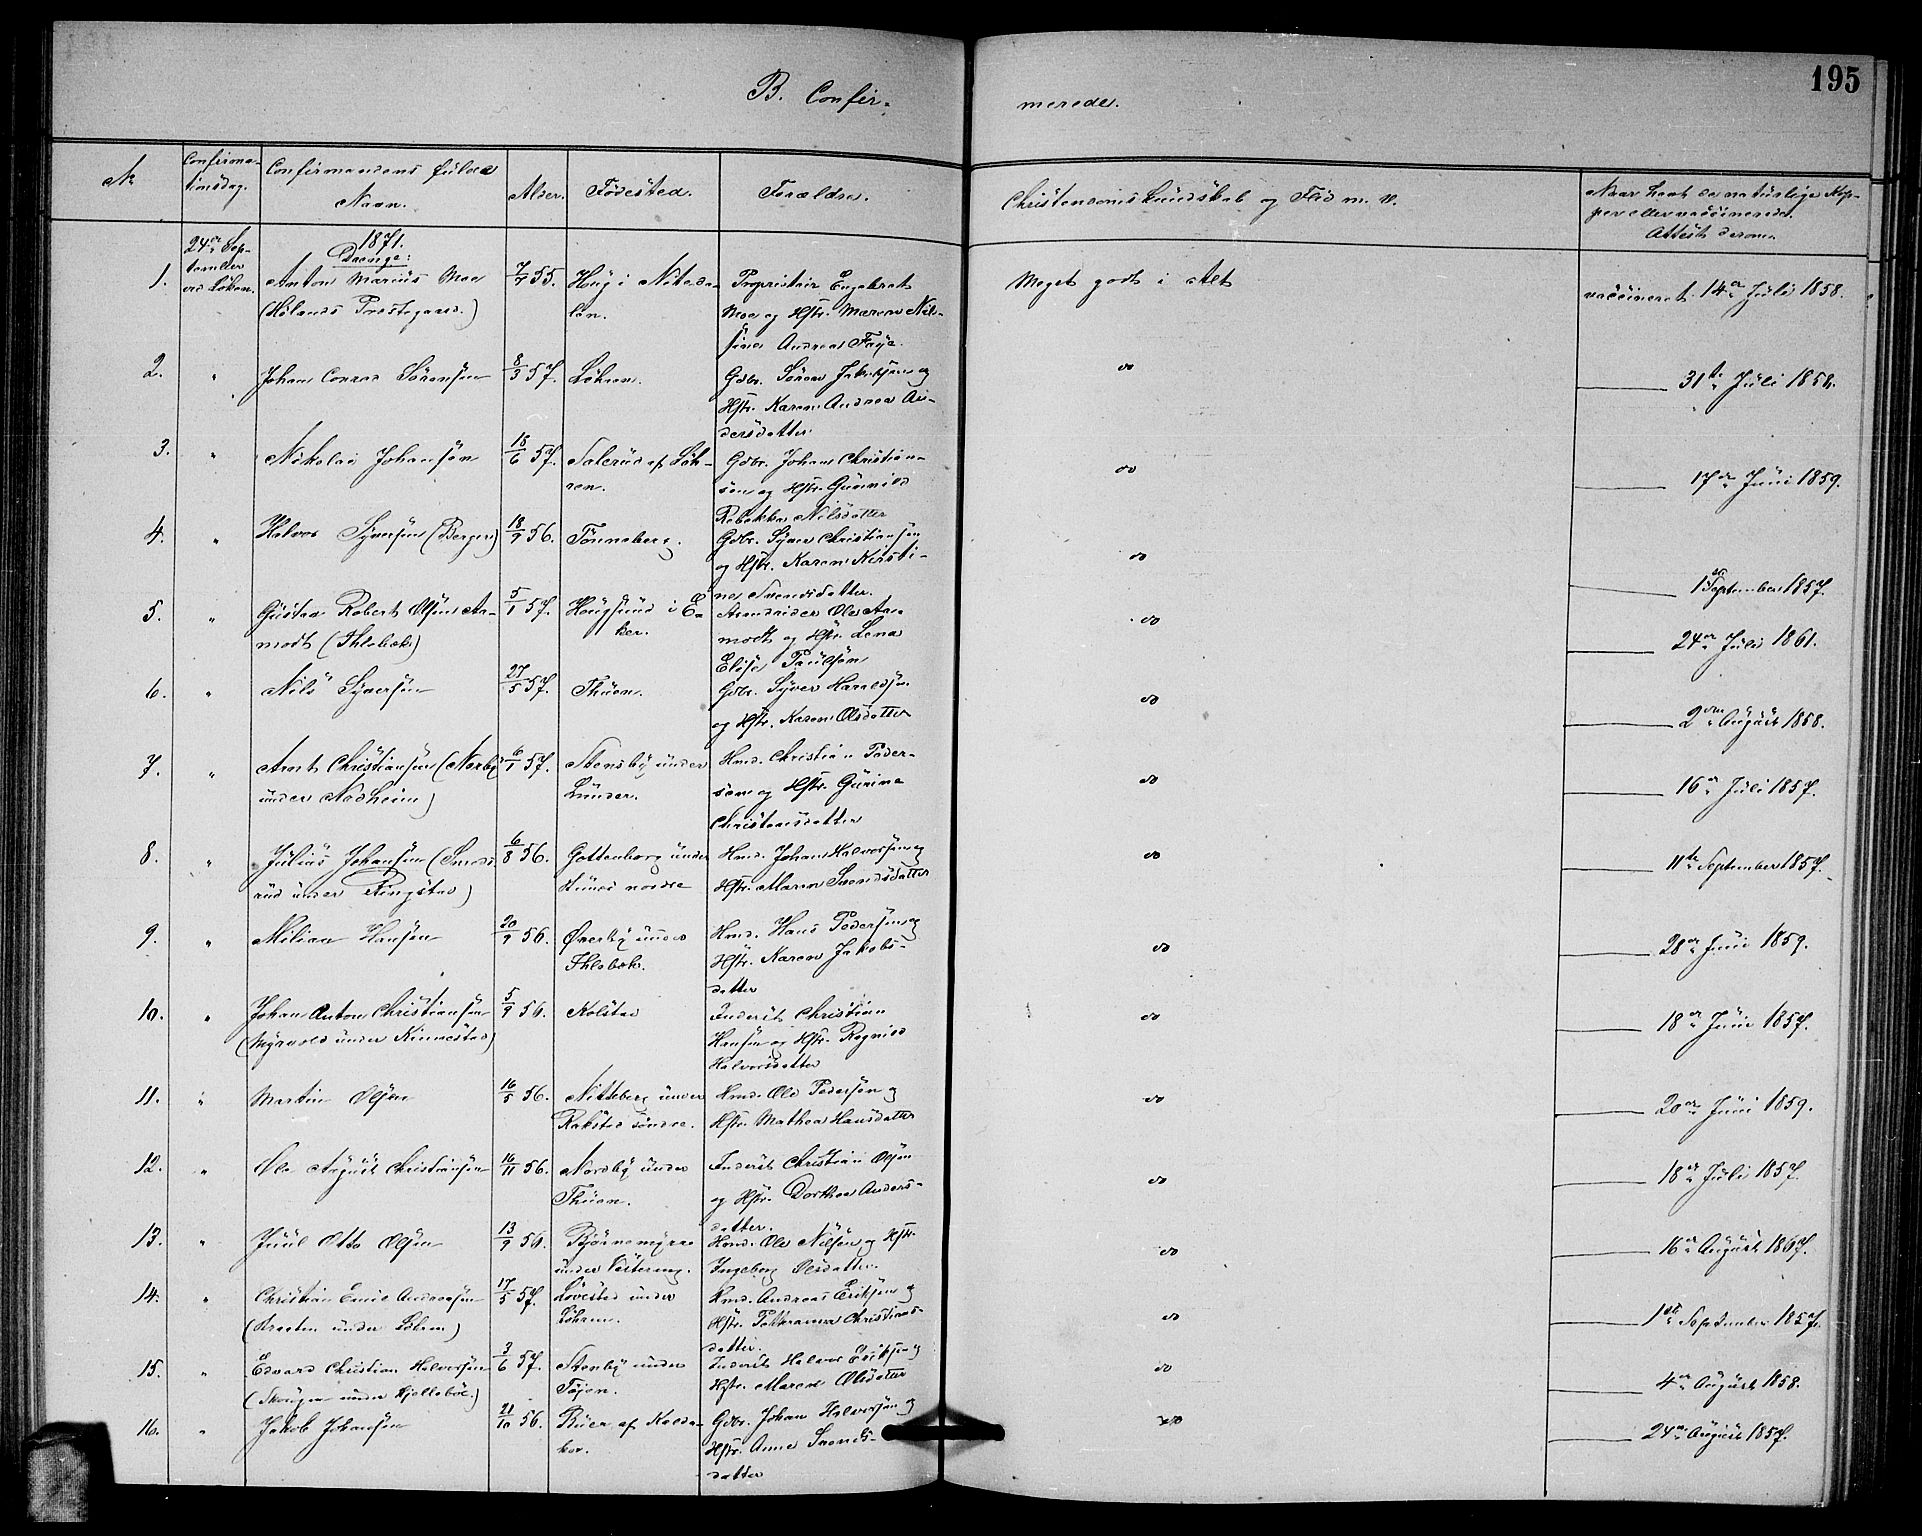 195
B. Confir-
merede.
No
Confirma-
tionsdag.
Confirmandens fulde
Navn.
Alder.
Fødested.
Forældre.
Christendomskundskab og Flid m. v.
Naar havt de naturlige Kop-
per eller vaccinerede.
Attest derom.
1871.
Drenge:
1.
24de Sep-
tember
ved Løken.
Anton Marius Moe
(Hølands Prestegaard.)
7/7 55.
Houg i Niteda-
len.
Proprietair Engebret
Moe og Hstr. Maren Nil-
sine Andrea Faye.
Meget godt i Alt
vaccineret 14de Juli 1858.
2.
"
Johan Conrad Sörensön
8/3 57.
Löken.
Gdbr. Sören Jakobsön og
Hstr. Karen Andrea An-
dersdatter
do
31te Juli 1858.
3.
"
Nikolai Johansön
18/6 57.
Salerud af Løk-
ren.
Gdbr. Johan Christian-
sen og Hstr. Gunnild
Rebekka Nilsdatter
do
17de Juni 1859.
4.
"
Halvor Syversön (Berger)
18/9 56.
Tönneberg.
Gdbr. Syver Christiansön
og Hstr. Karen Kirsti-
ne Svendsdatter.
do
1ste September 1857.
5.
"
Gustav Robert Olsen Aa-
modt (Ihlebæk)
5/1 57.
Hougsund i E-
ker.
Ole Aa-
modt og Hstr. Lena
Elise Paulsön
do
24de Juli 1861.
6.
"
Nils Syversön
27/5 57.
Thuen.
Gdbr. Syver Haraldsön
og Hstr. Karen Olsdatter
do
2den August 1858.
7.
"
Arnt Christiansön (Nordby
under Nodheim)
6/1 57.
Stensby under
Lunder.
Hmd. Christian Peder-
sen og Hstr. Gurine
Christensdatter
do
16de Juli 1857.
8.
"
Julius Johansön (Smeds-
rud under Ringstad)
6/8 56.
Gottenborg under
nordre
Hmd. Johan Halvorsön og
Hstr. Maren Svendsdatter
do
11te September 1857.
9.
"
Milian Hansön
20/9 56.
Øverby under
Ihlebæk.
Hmd. Hans Pedersön og
Hstr. Karen Jakobs-
datter
do
28de Juni 1859.
10.
"
Johan Anton Christiansön
(Myrvold under Kinnestad)
5/9 56.
Kolstad
Inderst Christian
Hansön og Hstr. Ragnild
Halvorsdatter
do
18de Juni 1857.
11.
"
Martin Olsen
16/5 56.
Nitteberg under
Rakstad söndre.
Hmd. Ole Pedersön og
Hstr. Mathea Hansdatter
do
20de Juni 1859.
12.
"
Ole August Christiansön
16/11 56.
Nordby under
Thuen.
Inderst Christian Olsön
og Hstr. Dorthea Anders-
datter.
do
18de Juli 1857.
13.
"
Juul Otto Olsön
13/9 56.
Bjørnemyren
under Vestereng.
Hmd. Ole Nilsön og Hstr.
Ingeborg Olsdatter.
do
16de August 1867.
14.
"
Christian Emil Andreasön
(Braaten under Løkren)
17/5 57.
Lövestad under
Løkren.
Hmd. Andreas Eriksön og
Hstr. Pettrania Christians-
datter.
do
1ste September 1857.
15.
"
Edvard Christian Halvorsön
(Skougen under Hjellebøl.)
3/6 57.
Stenby under
Tøjen.
Inderst Halvor Eriksön og
Hstr. Maren Olsdatter
do
4de August 1858.
16.
"
Jakob Johansön
21/10 56.
Buer af Kalda-
ker.
Gdbr. Johan Halvorsön og
Hstr. Anne Svends-
datter
do
24de August 1857.